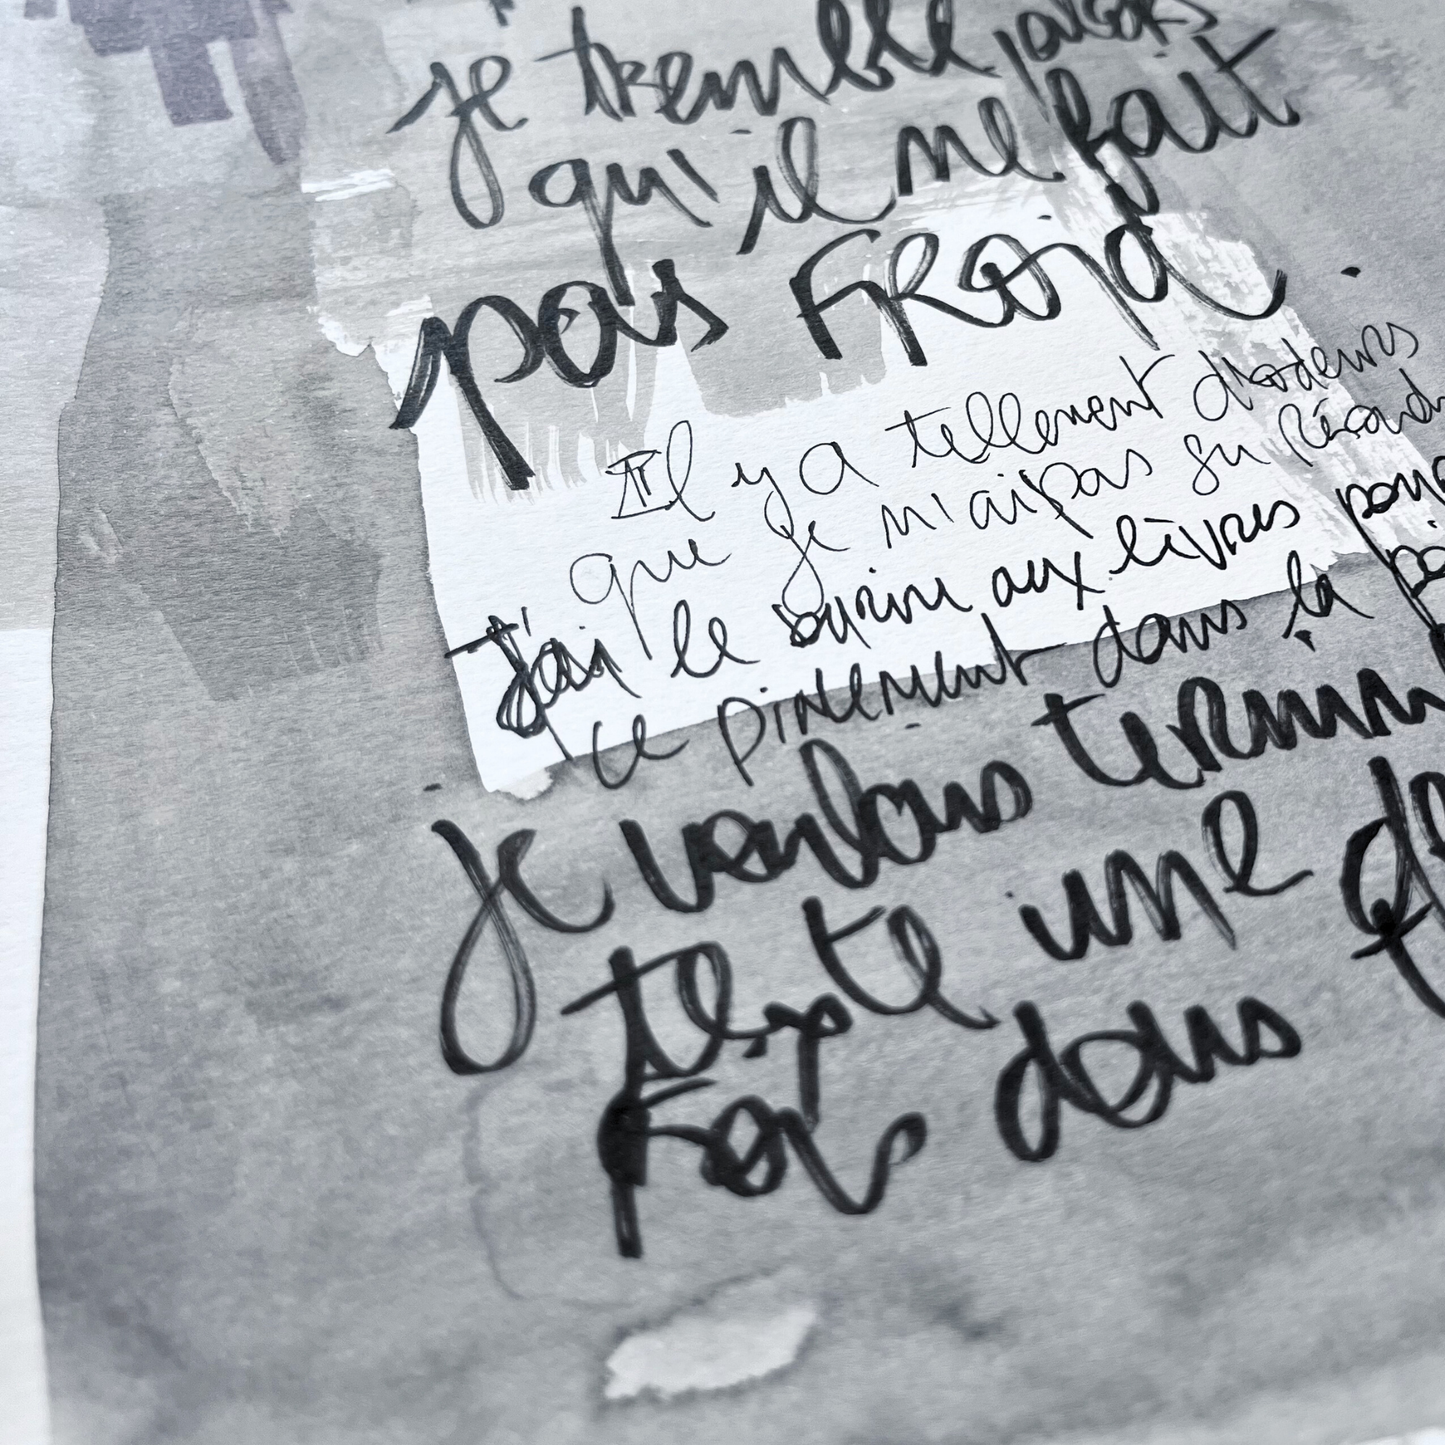 je tremble alors
qu'il ne fait
pas FRoid.
Il y a tellement d'odeurs
que je n'ai pas su
J'ai le sourire aux lèvres
ce pincement dans la
je voulais
texte une
Fois dans